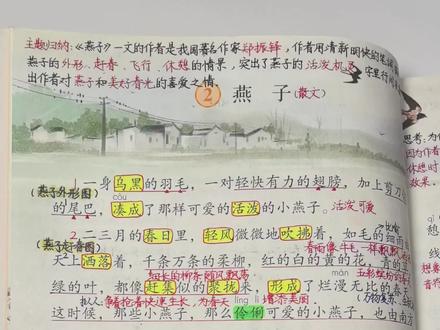 主题归纳:《燕子》一文的作者是我国著名作家郑振铎,作者用清新明快的笔调
燕子的外形、赶春、飞行、休憩的情景,突出了燕子的活泼机灵
字里行间
出作者对燕子和美好春光的喜爱之情。
2 燕 子(散文)
思考:为什
1.一身乌黑的羽毛,一对轻快有力的翅膀,加上剪刀
(燕子外形图)
còu
的尾巴,凑成了那样可爱的活泼的小燕子。活泼可爱
2.二三月的春日里,轻风微微地吹拂着,如毛的细雨
(燕子赶春图)
天上洒落着,千条万条的柔柳,红的白的黄的花,青的
细长的柳条随风飘荡
màn
绿的叶,都像赶集似的聚拢来,形成了烂漫无比的春天
拟人
líng lì
增添美丽
这时候,那些小燕子,那么伶俐可爱的小燕子,也由南方